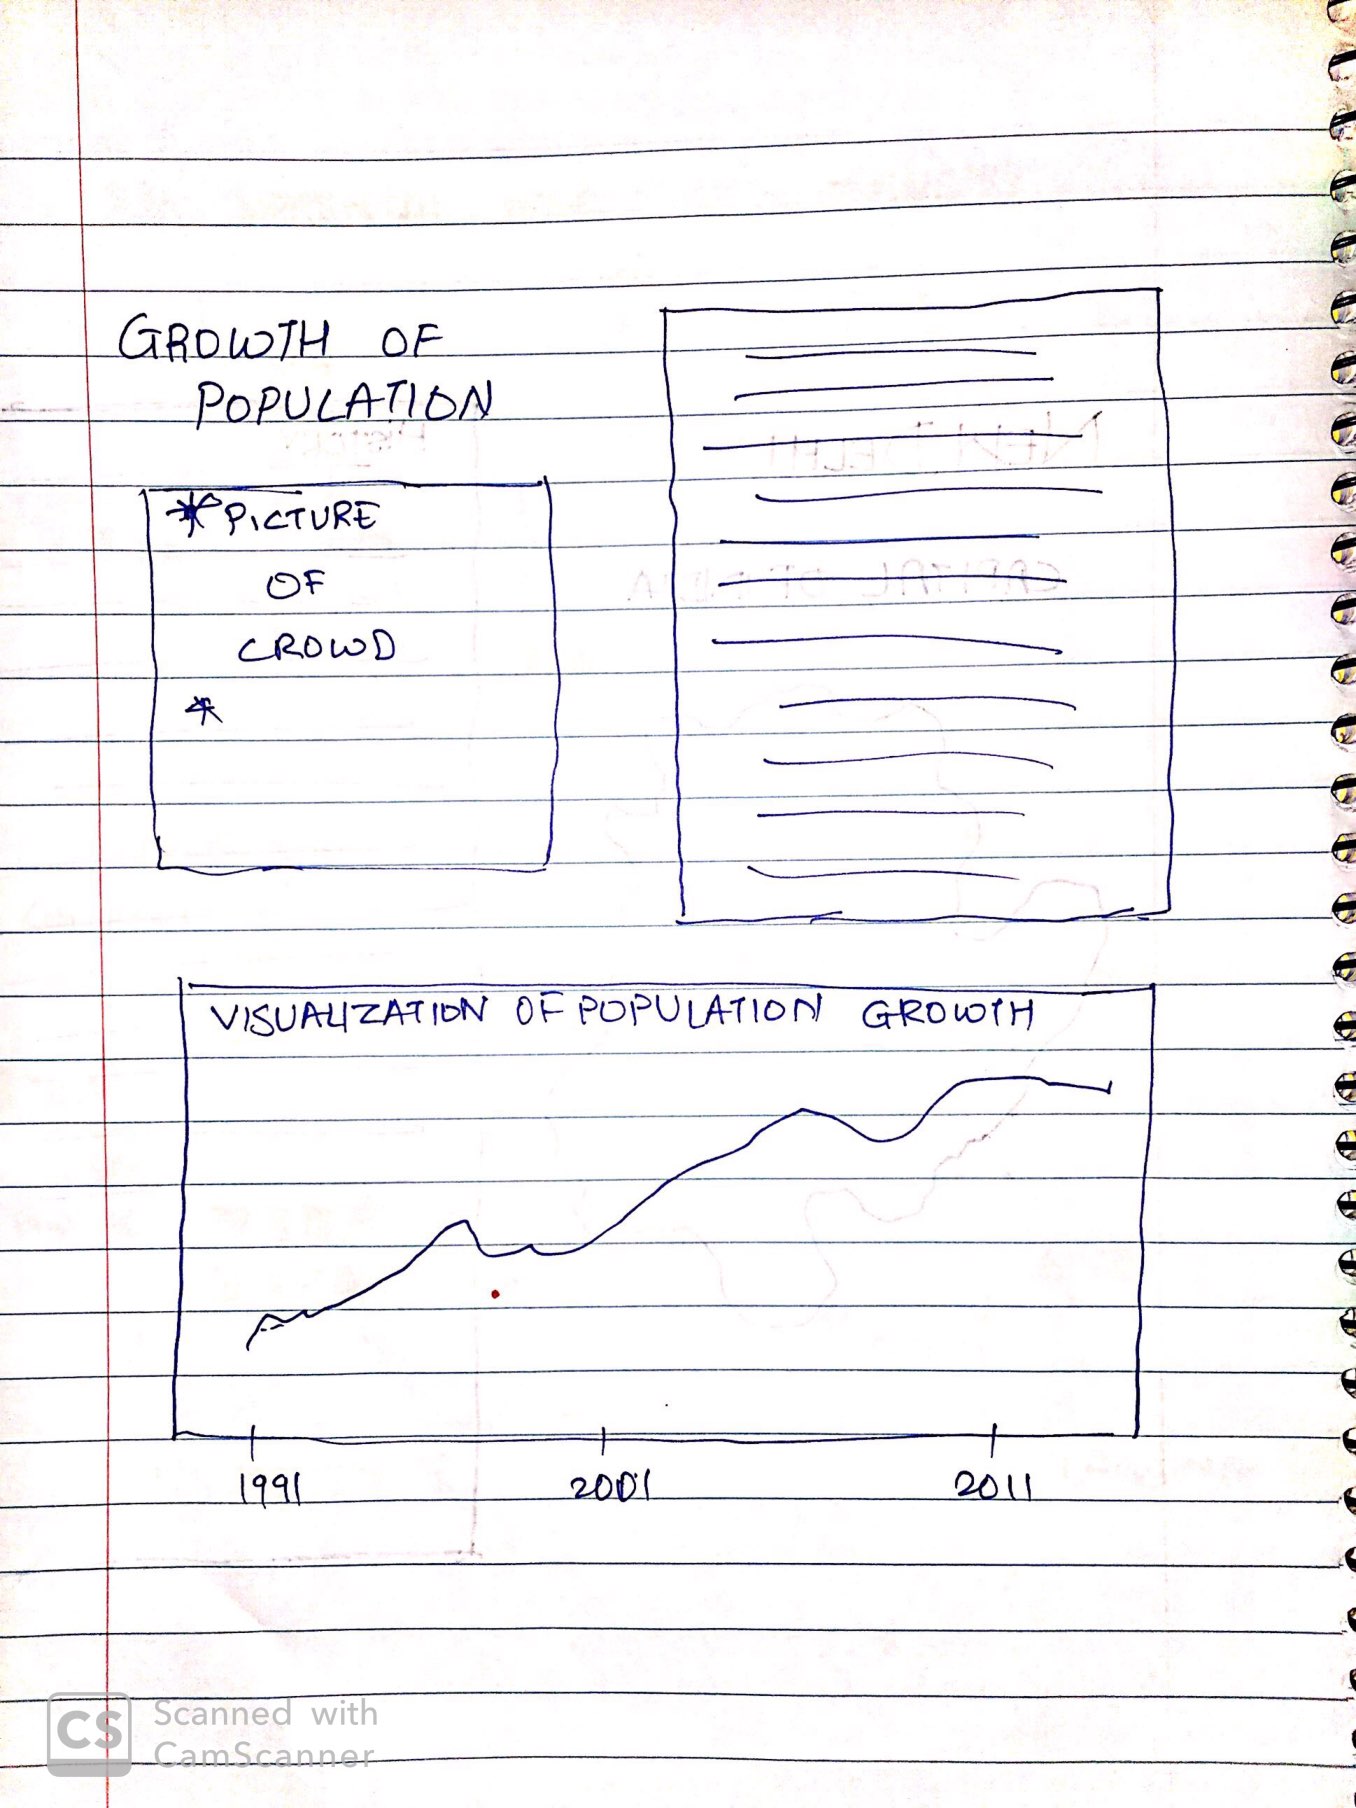 GROWTH OF
POPULATION
*PICTURE
OF
CROWD
*
VISUALIZATION OF POPULATION GROWTH
1991 2001 2011
CS Scanned with
CamScanner